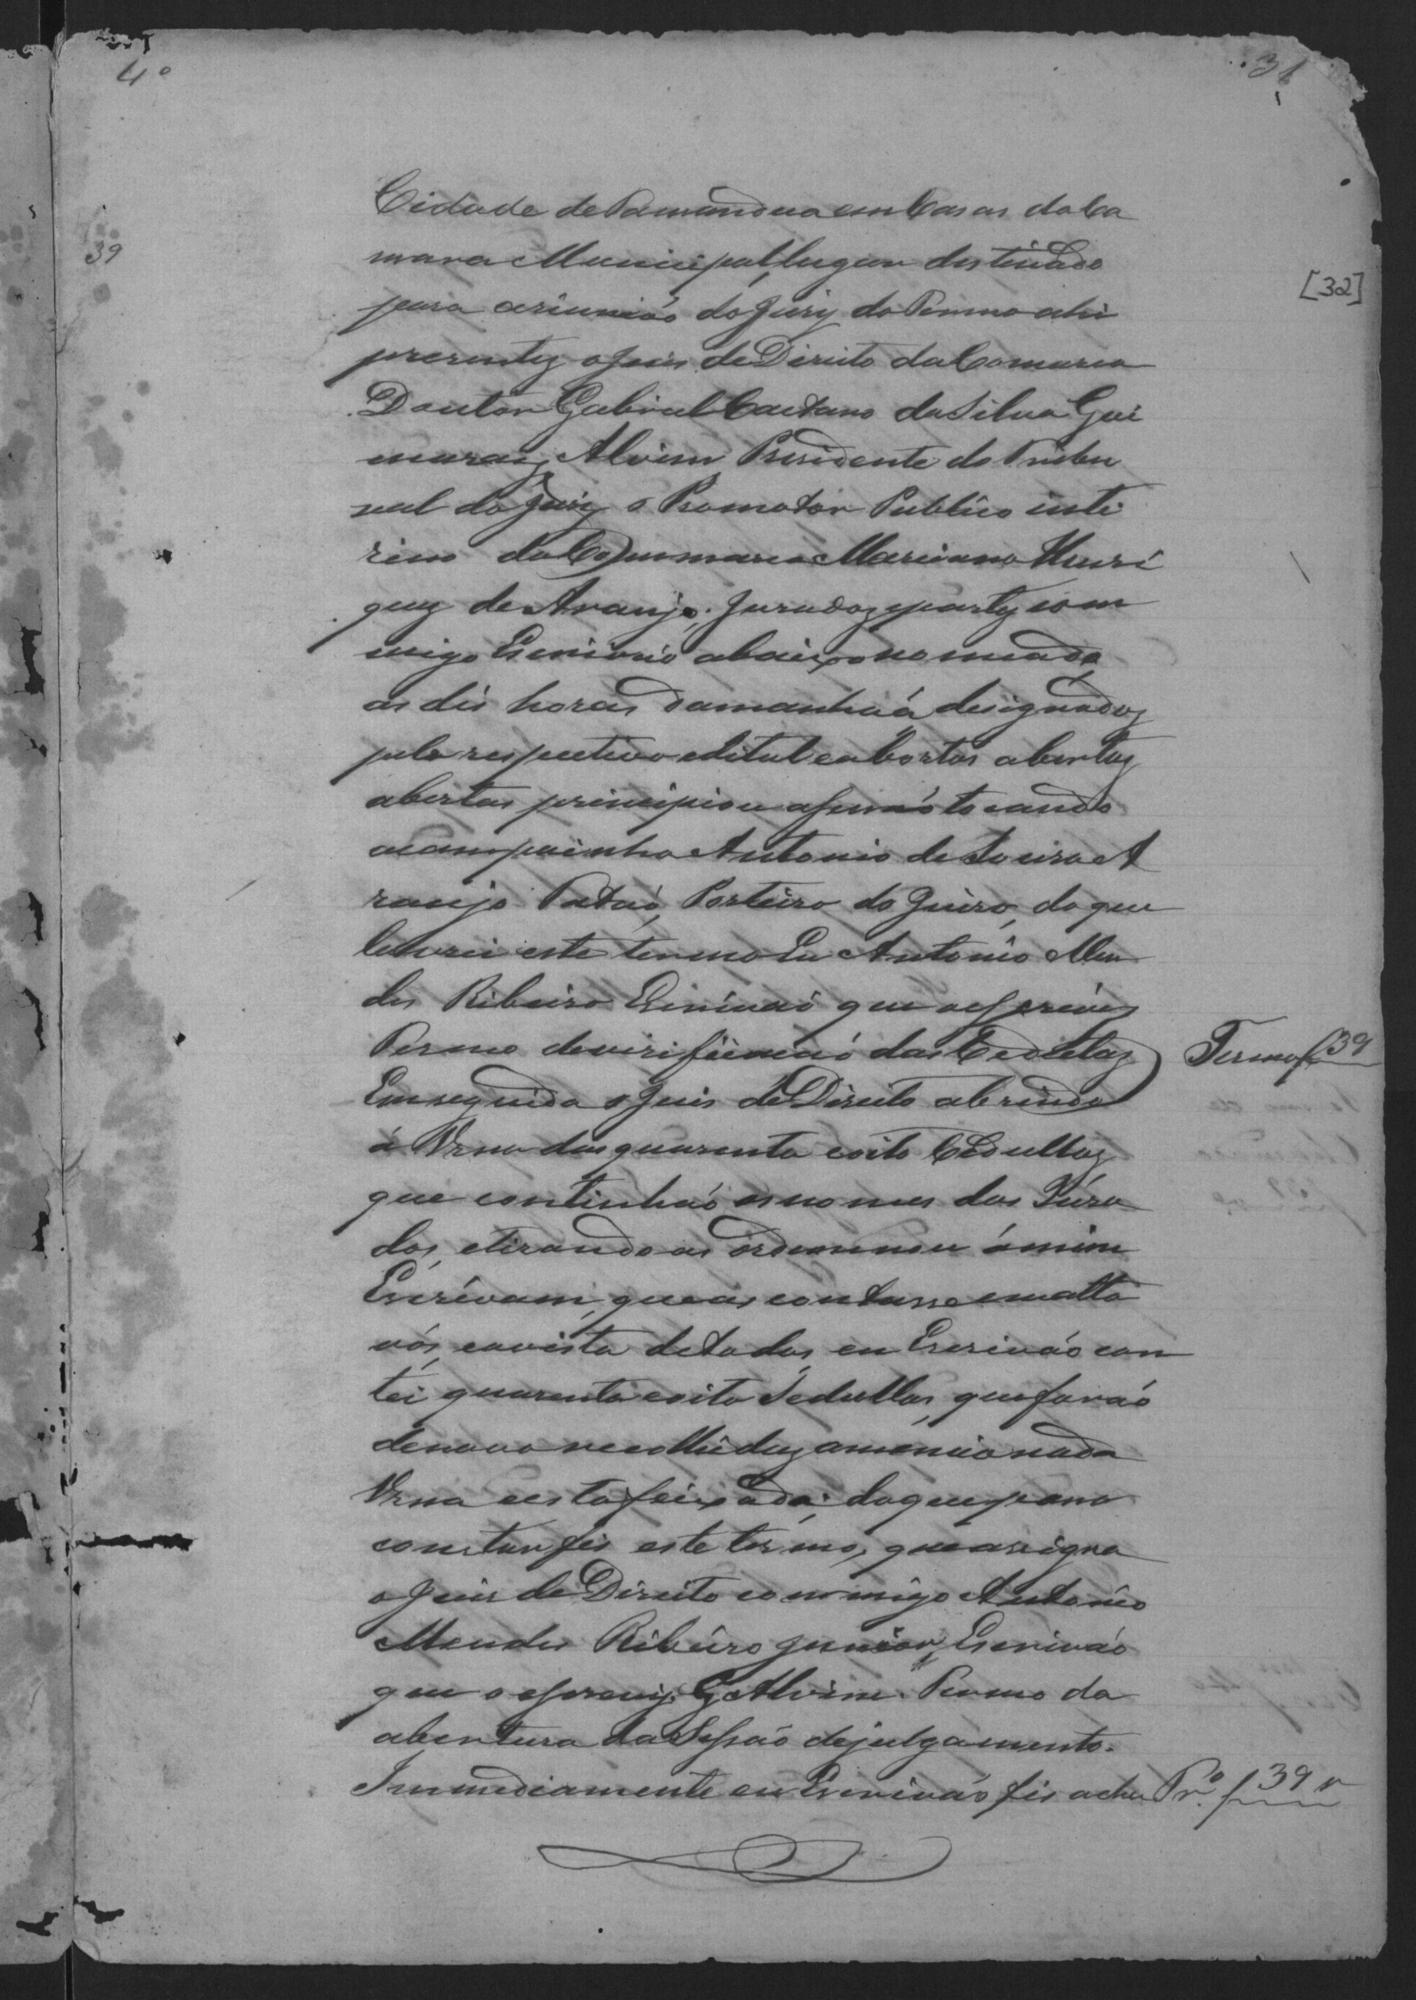 4º
31
39
[32]
Cidade de Tamandua em Casas da Ca
mara Municipal, lugar destinado
para a riunião do Jury do Termo ahi
presentes o Juis de Direito da Comarca
Doutor Gabriel Caetano da Silva Gui
maraes Alvim, Presidente do Tribu
nal do Jury o Promotor Publico inte
rino da Commarca Marciano Henri
ques de Araujo, Jurados e partes com
migo Escrivão abaixo nomeado,
as dés horas da manhaã designados
pelo respectivo edital e a portas abertas
abertas principiou a sessaó tocando
a campainha Antonio de Souza A
raujo Pataó, Porteiro do Juizo, do que
lavrei este termo Eu Antonio Men
des Ribeiro Escrivaó que o escrevi
Termo de virificacaó das Cedulas
Termo f 39
Em seguida o Juis de Direito abrindo
á Urna das quarenta e oito Cedullas
que continhaó os nomes dos Júra
dos, e tirando as órdennou á mim
Escrívam, que as contasse em alta
vós, e a vista de todos, eu Escrivão con
tei quarenta e oito Sedullas, que forão
de novo recolhidas a mencionada
Urna e esta feixada; do que para
constar fis este termo, que assigna
o Juis de Direito commigo Antonio
Mendes Ribeiro Junior, Escrivão
que o escrevi. G. Alvim. Termo da
abertura da Sessão de julgamento.
Immediamente eu Escrivão fis a cha
Pr.º f 39 v